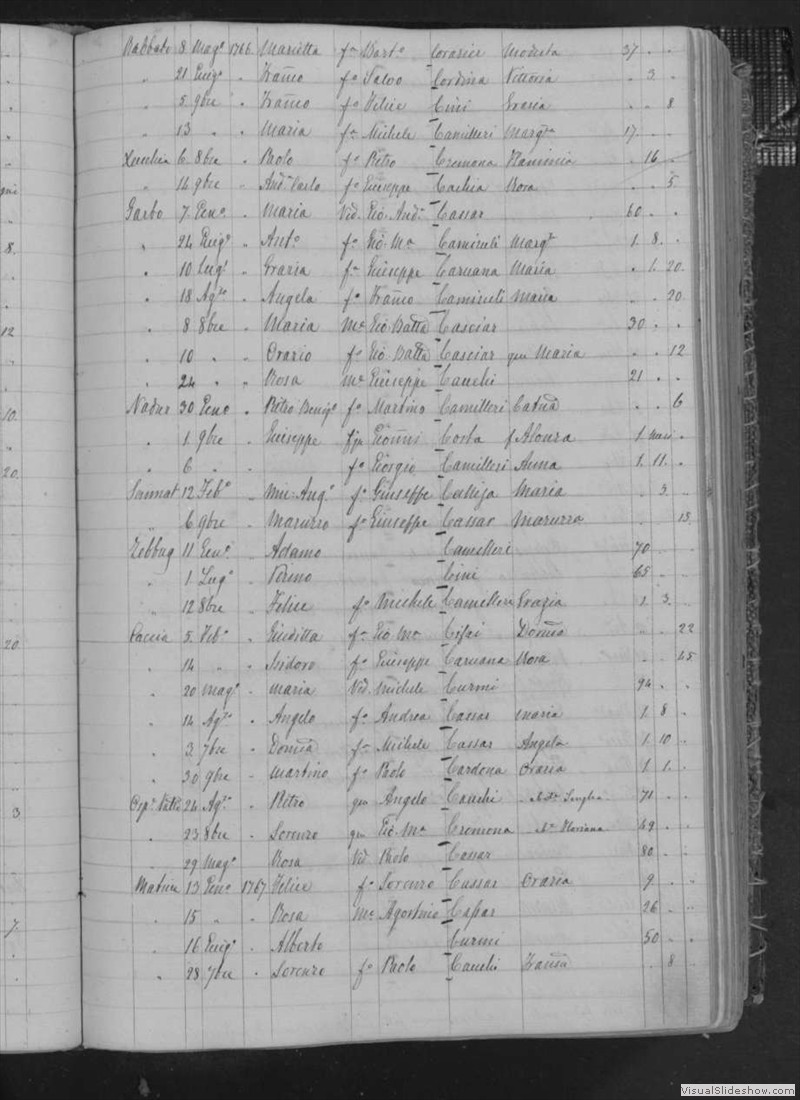 Rabbato 8 Mag° 1766 Marietta fa Bart° Corasice Modesta 37 . .
" 21 Giug° " Franco fo Salvo Cordina Vittoria . 3 .
" 5 9bre " Franco fo Felice Cini Grazia . . 8
" 13 " " Maria fa Michele Camilleri Margta 17 . .
6 8bre " Paolo fo Pietro Cremona Flaminia . 16 .
" 14 9bre " Carlo fo Giuseppe Cachia Rosa . . 5
Garbo 7 Gen° " Maria Vid. Gio. And. Cassar 60 . .
" 24 Giug° " Ant° fo Gio. Ma Margta 1. 8. .
" 10 Lug° " Grazia fa Giuseppe Caruana Maria . 1. 20.
" 18 Ag° " Angela fa Franco Maria . . 20
" 8 8bre " Maria Me Gio. Batta Casciar 30 . .
" 10 " " Orazio fo Gio. Batta Casciar qm Maria . . 12
" 24 " " Rosa Me Giuseppe Cauchi 21 . .
Nadur 30 Gen° " Pietro fo Martino Camilleri . . 6
" 1 9bre " Giuseppe Gionni Costa 1.
" 6 " " fo Giorgio Camilleri Anna 1. 11. .
Sannat 12 Feb° " Mic. Ang° fo Giuseppe Calleja Maria . 3. .
" 6 9bre " Maruzzo fo Giuseppe Cassar Maruzza . . 13.
Zebbug 11 Gen° " Adamo Camilleri 70 . .
" 1 Lug° " Cini 65 . .
" 12 8bre " Felice fo Michele Camilleri Grazia 1 3. .
Caccia 5 Feb° " Giuditta fa Gio. Ma . . 22
" 14 " " Isidoro fo Giuseppe Caruana Rosa . . 45
" 20 Mag° " Maria Vid. Michele Curmi 94 . .
" 14 Ag° " Angelo fo Andrea Cassar Maria 1 8 .
" 3 7bre " fa Michele Cassar Angela 1 10 .
" 30 9bre " Martino fo Paolo Cardona Orazia 1 1. .
24 Ag° " Pietro qm Angelo Cauchi 71 . .
" 23 8bre " Lorenzo qm Gio. Ma Cremona Floriana 49 . .
" 29 Mag° Rosa Vid Paolo Cassar 80 . .
Matrice 13 Gen° 1767 Felice fo Lorenzo Cassar Orazia 9 . .
" 15 " " Rosa Me Agostino 26 . .
" 16 Giug° " Alberto Curmi 50 . .
" 28 7bre " Lorenzo fo Paolo Cauchi . 8 .
8.
12
10.
20.
20.
3
7.
VisualSlideshow.com